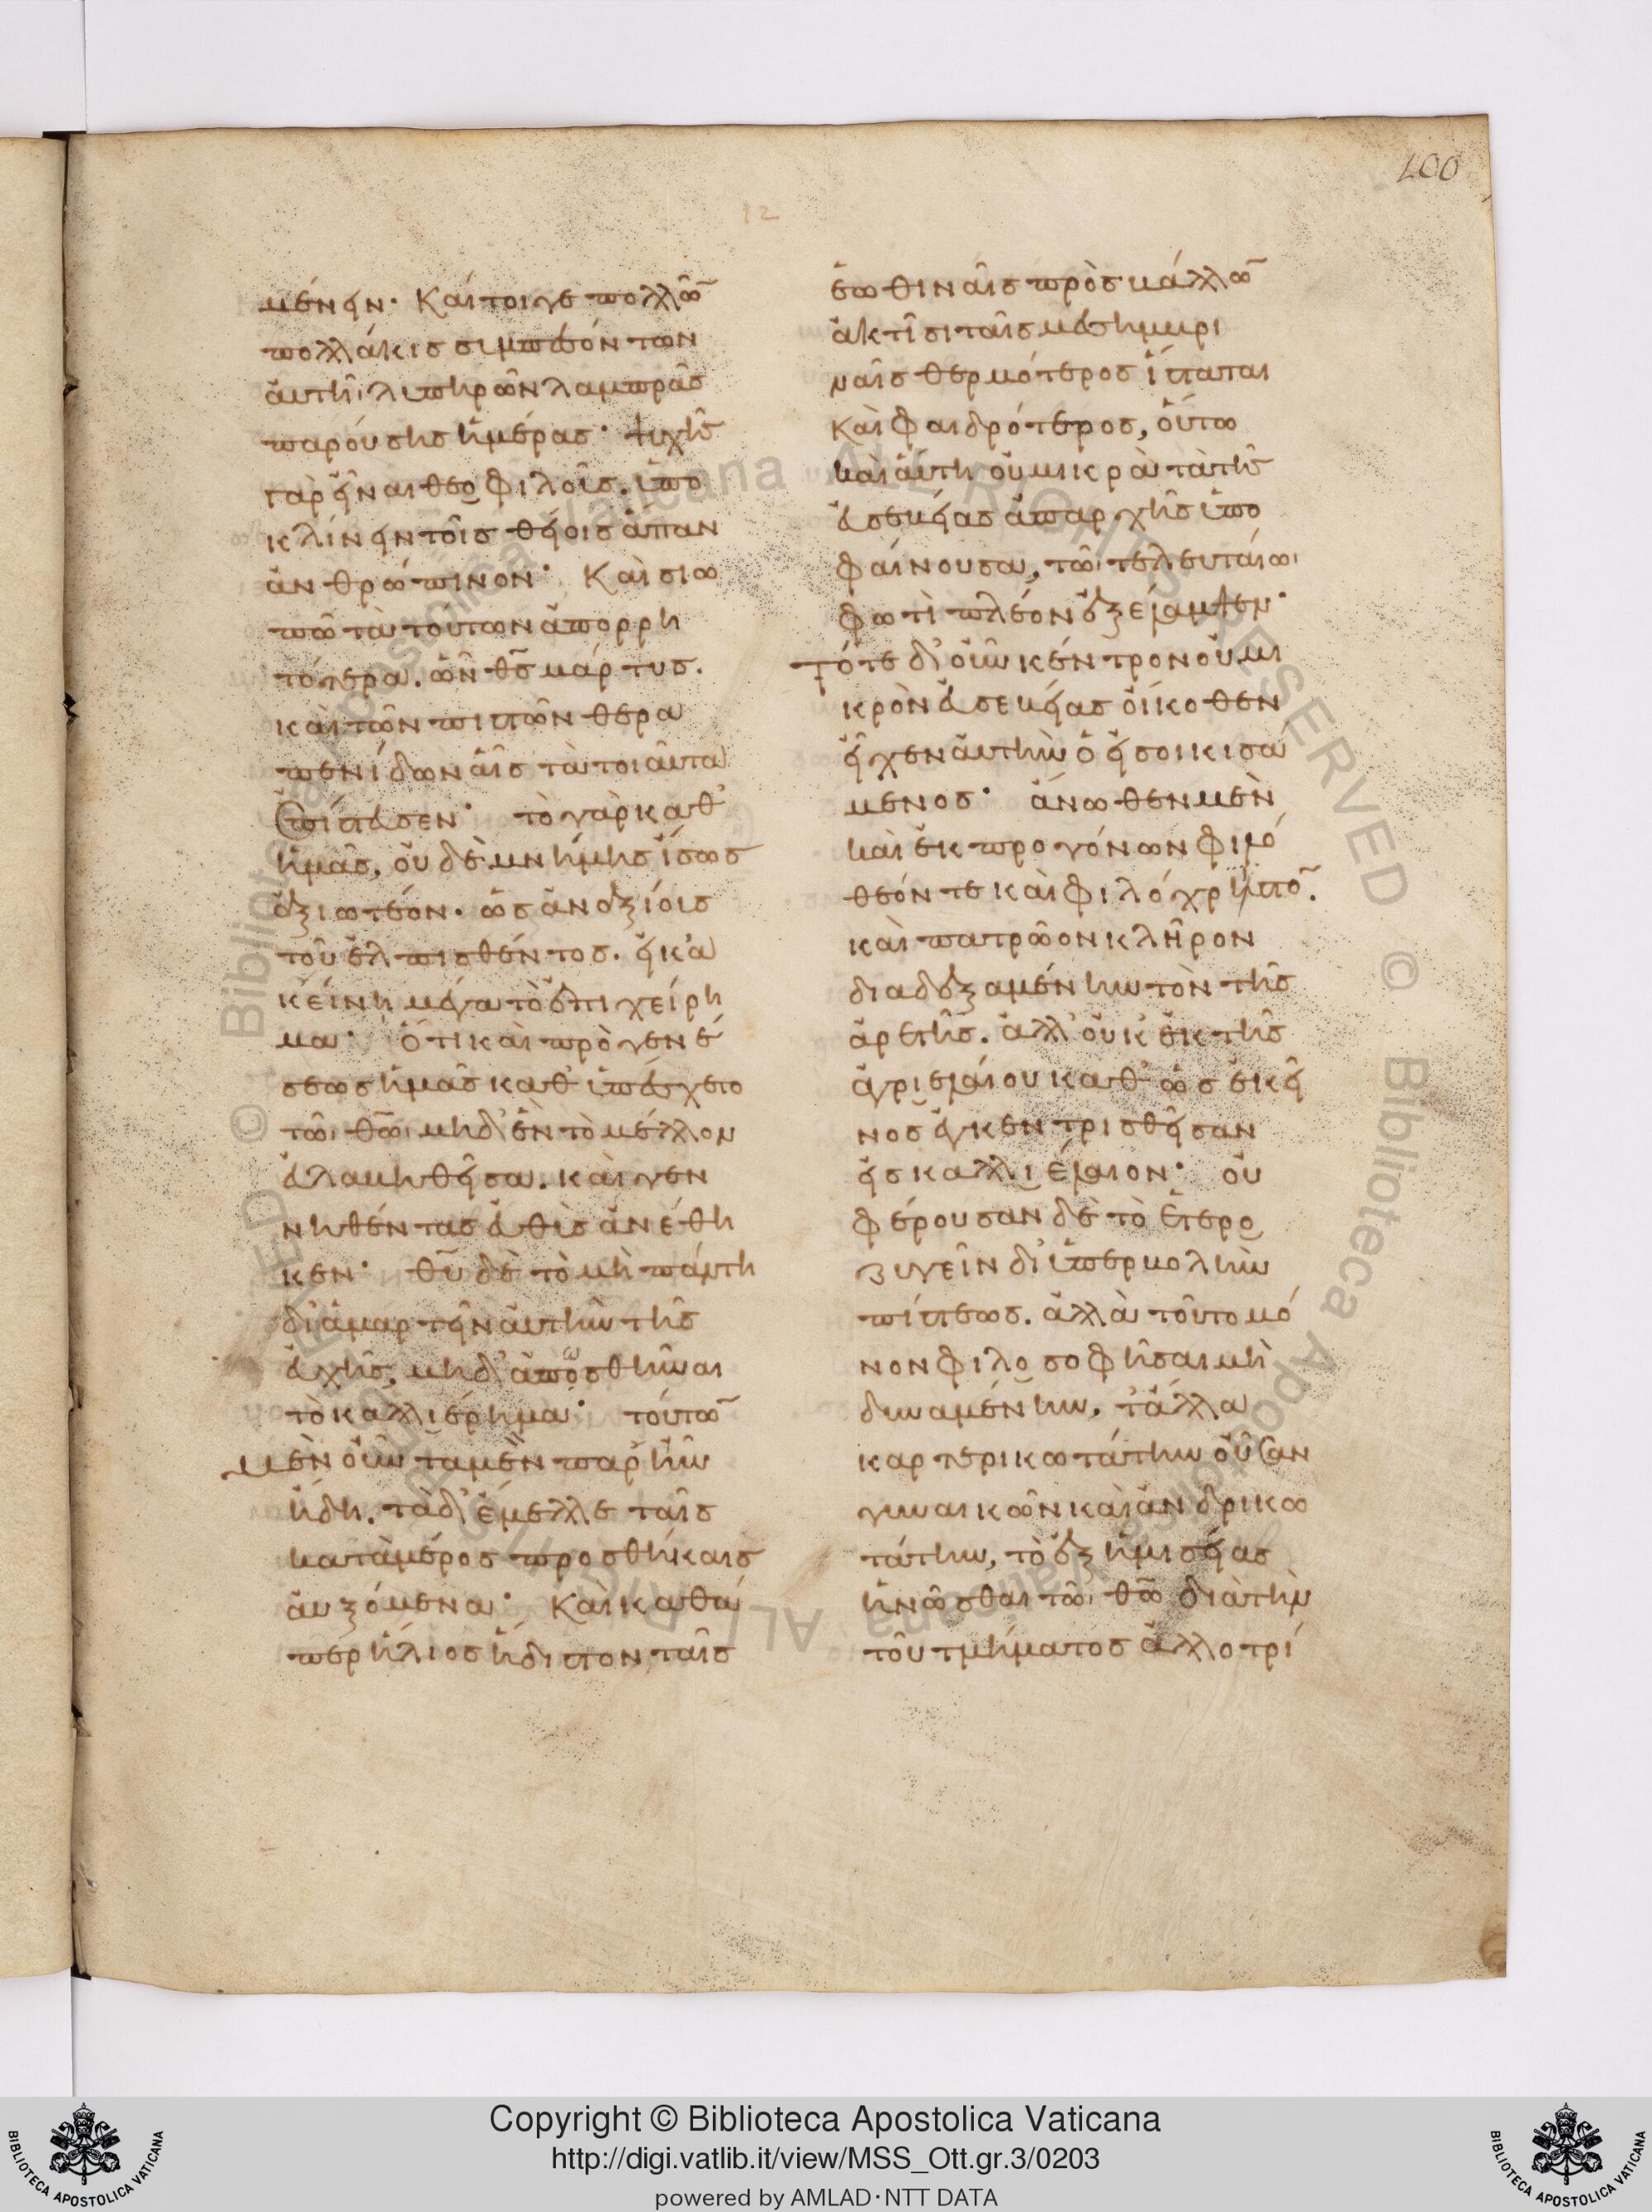 100
12
μένειν· Καίτοιγε πολλῶ̅
πολλάκις συμπεσόντων
αὐτῆι λυπηρῶν λαμπρᾶς
παρούσης ἡμέρας· ψυχῆς
γὰρ εἶναι θεοφιλοῦς. ὑπο
κλίνειν τοῖς θείοις ἅπαν
ἀνθρώπινον· Καὶ σιω
πῶ τὰ τούτων ἀπορρη
τότερα. ὧν θ̅ς μάρτυς.
καὶ τῶν πιστῶν θερα
παινίδων αἷς τὰ τοιαῦτα
ἐπίστευσεν· τὸ γὰρ καθ᾽
ἡμᾶς, οὐδὲ μνήμης ἴσως
ἀξιωτέον. ὡς ἀναξίοις
τοῦ ἐλπισθέντος. εἰ κἀ
κείνη μέγα τὸ ἐπιχείρη
μα· Ὅτι καὶ πρὸ γενέ
σεως ἡμᾶς καθυπέσχετο
τῶι θ̅ῶι μηδὲν τὸ μέλλον
εὐλαβηθεῖσα. καὶ γεν
νηθέντας εὐθὺς ἀνέθη
κεν· θ̅υ δὲ τὸ μὴ πάντη
διαμαρτεῖν αὐτὴν τῆς
εὐχῆς, μηδ᾽ ἀπωσθῆναι
τὸ καλλιέρημα· τούτω̅
μὲν οὖν τα μὲν παρῆν
ἤδη. τὰ δ᾽ ἔμελλε ταῖς
κατὰ μέρος προσθήκαις
αὐξόμενα· Καὶ καθά
περ ἥλιος ἥδιστον ταῖς
ἑωθιναῖς προσβάλλω̅
ἀκτῖσι ταῖς μεσημβρι
ναῖς θερμότερος ἵσταται
καὶ φαιδρότερος, οὕτω
καὶ αὕτη οὐ μικρὰ τὰ τῆς
εὐσεβείας ἀπαρχῆς ὑπο
φαίνουσα, τῶι τελευταίωι
φωτὶ πλέον ἐξέλαμψεν·
Τότε δ᾽ οὖν κέντρον οὐ μι
κρὸν εὐσεβείας οἴκοθεν
εἶχεν αὐτὴν ὁ εἰσοικισά
μενος· ἄνωθεν μὲν
καὶ ἐκ προγόνων φιλό
θεόν τε καὶ φιλόχριστο̅.
καὶ πατρῶον κλῆρον
διαδεξαμένην τὸν τῆς
ἀρετῆς. ἀλλ᾽ οὐκ ἐκ τῆς
ἀγριελαίου καθ᾽ ὡς ἐκεῖ
νος ἐγκεντρισθεῖσαν
εἰς καλλιέλαιον· οὐ
φέρουσαν δὲ τὸ ἑτερο
ζυγεῖν δι᾽ ὑπερβολὴν
πίστεως. ἀλλὰ τοῦτο μό
νον φιλοσοφῆσαι μὴ
δυναμένην. τἄλλα
καρτερικωτάτην οὖσαν
γυναικῶν καὶ ἀνδρικω
τάτην, τὸ ἐξ ἡμισείας
ἡνῶσθαι τῶι θ̅ῶ διὰ τὴν
τοῦ τμήματος ἀλλοτρί
Copyright © Biblioteca Apostolica Vaticana
http://digi.vatlib.it/view/MSS_Ott.gr.3/0203
powered by AMLAD·NTT DATA
BIBLIOTECA APOSTOLICA VATICANA
BIBLIOTECA APOSTOLICA VATICANA